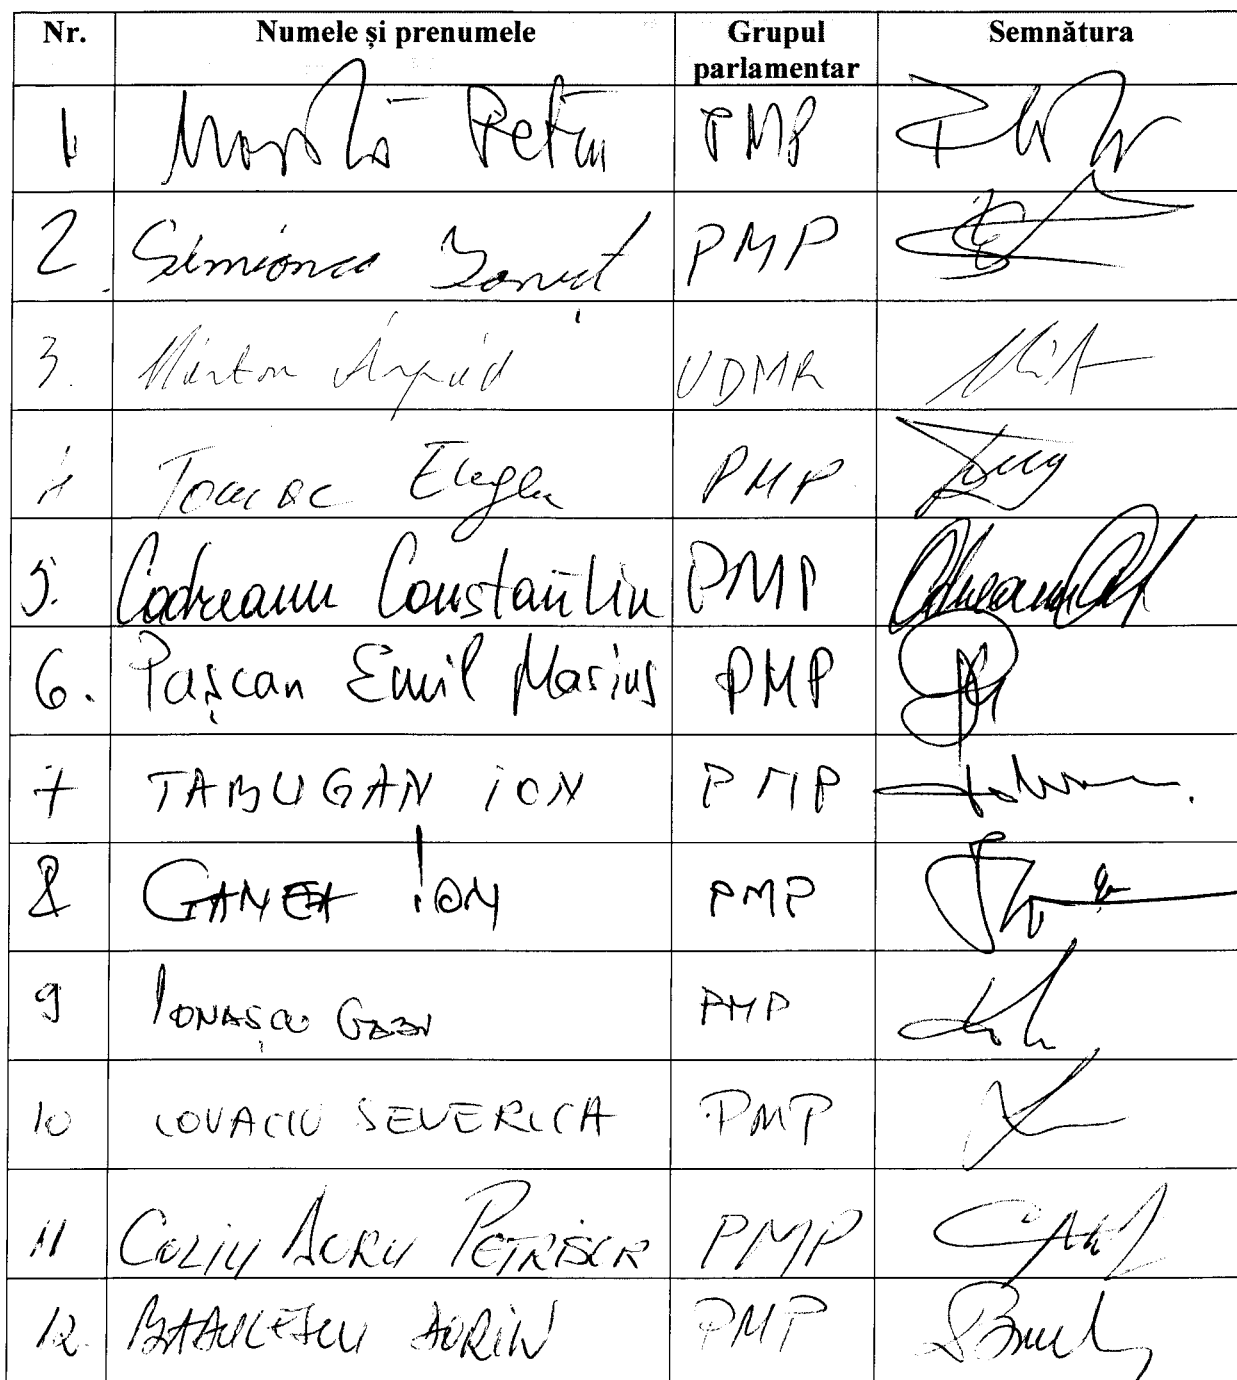 Nr. Numele și prenumele Grupul parlamentar Semnătura
1 Petru PMP
2. Simionca Ionuț PMP
3. Márton Árpád UDMR
4 Tomac Eugen PMP
5. Codreanu Constantin PMP
6. Pașcan Emil Marius PMP
7 TABUGAN ION PMP
8 GANEA ION PMP
9 IONAȘCU GABI PMP
10 COVACIU SEVERICA PMP
11 PMP
12. PMP